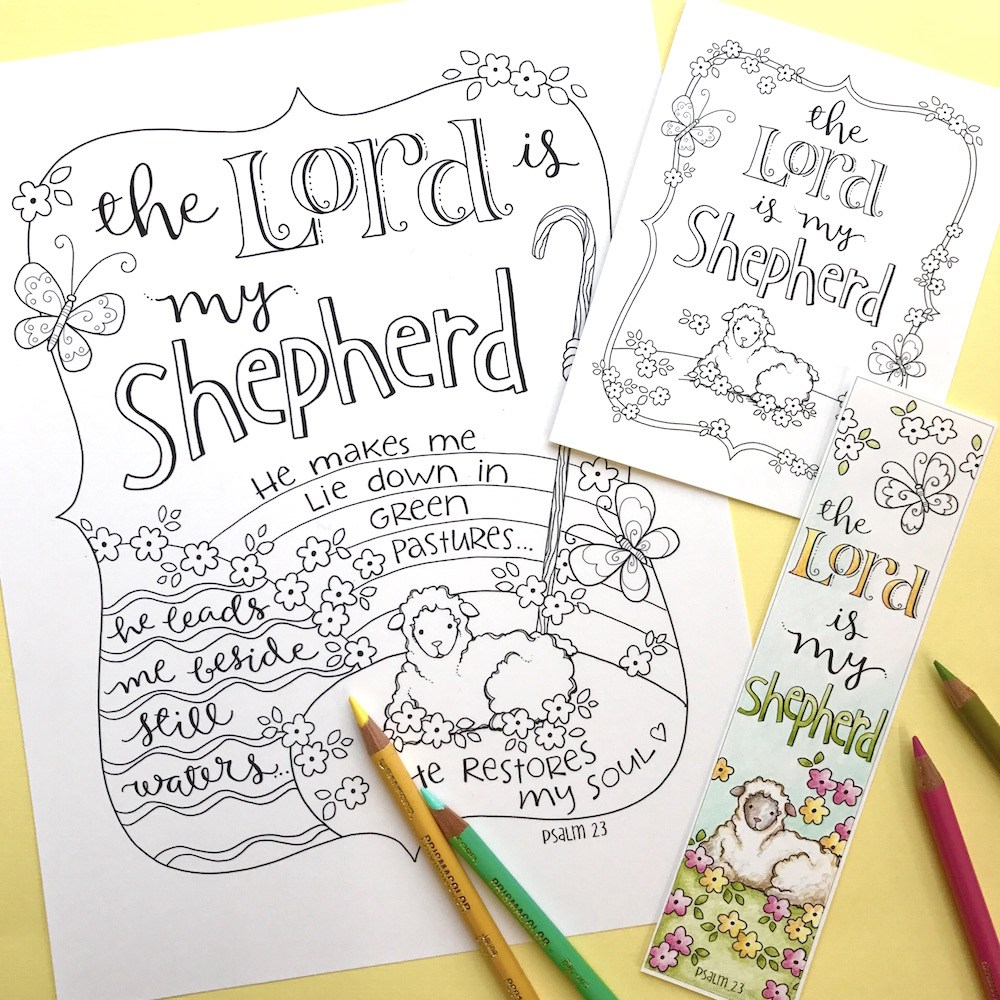 the Lord is
my
Shepherd
He makes me
Lie down in
Green
Pastures...
he leads
me beside
still
waters...
He Restores
my soul
Psalm 23
the
Lord
is my
Shepherd
the
Lord
is
my
Shepherd
Psalm 23
PRISMACOLOR
PRISMACOLOR